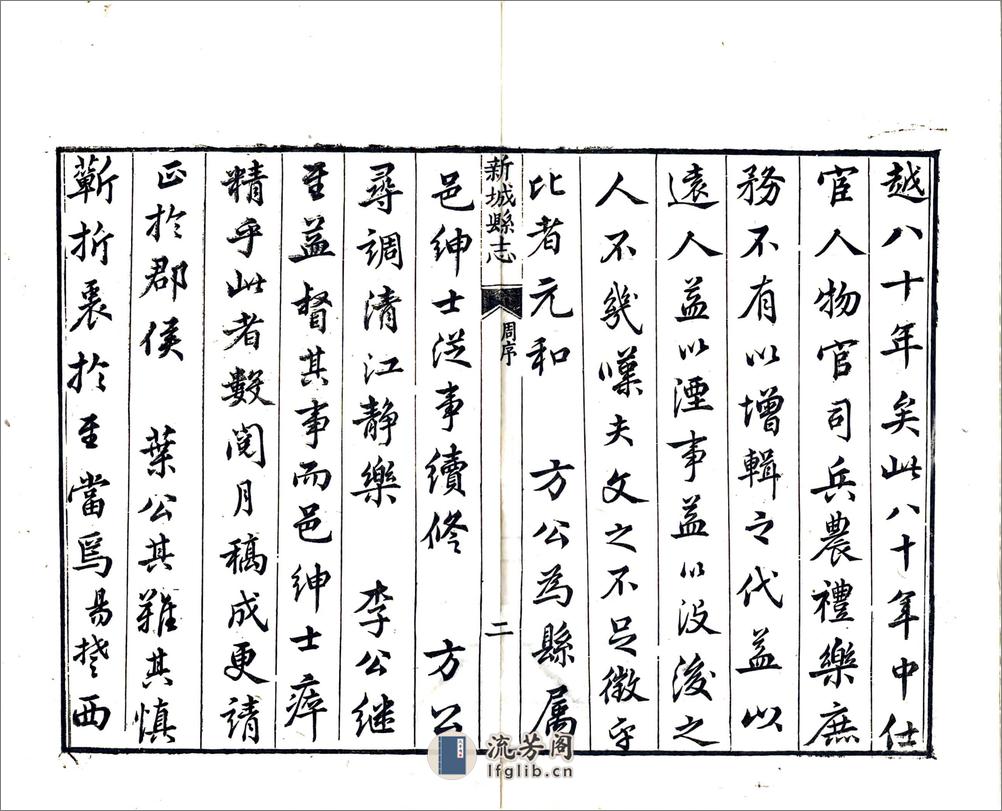 越八十年矣此八十年中仕
宦人物官司兵農禮樂庶
務不有以增輯之代益以
遠人益以湮事益以沒後之
人不幾嘆夫文之不足徵乎
比者元和 方公為縣属
新城縣志 周序 二
邑紳士從事續修 方公
尋調清江静樂 李公継
至益督其事而邑紳士瘁
精乎此者數閱月稿成更請
正於郡侯 葉公其難其慎
蘄折衷於至當焉昜㯓西
流芳阁
lfglib.cn